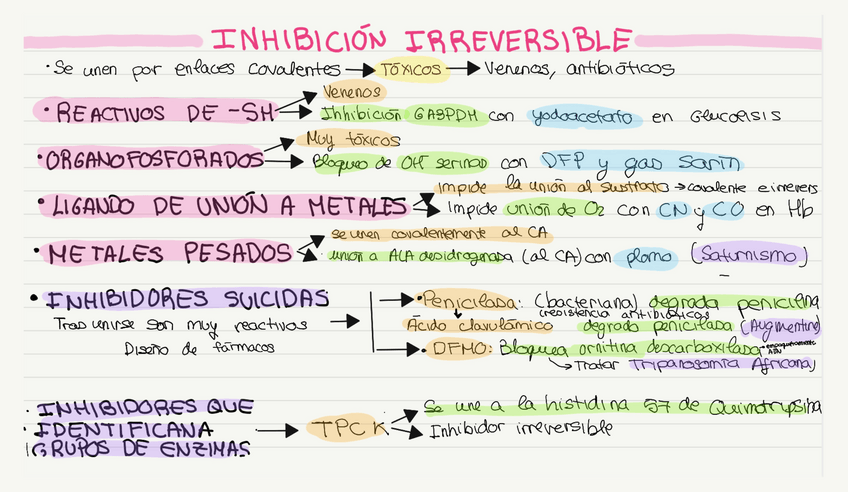 INHIBICIÓN IRREVERSIBLE
· Se unen por enlaces covalentes → TÓXICOS → Venenos, antibióticos
Venenos
· REACTIVOS DE -SH → Inhibición GA3PDH con yodoacetato en Glucolisis
Muy tóxicos
· ORGANOFOSFORADOS → Bloqueo de OH serinas con DFP y gas Sarín
Impide la unión al sustrato → covalente e irrevers
· LIGANDO DE UNIÓN A METALES → Impide unión de O2 con CN y CO en Hb
se unen covalentemente al CA
· METALES PESADOS → unión a ALA desidrogenasa (al CA) con plomo (Saturnismo)
· INHIBIDORES SUICIDAS → · Penicilasa: (bacteriana) degrada penicilina
(resistencia antibióticos
Tras unirse son muy reactivos → Ácido clavulámico degrada penicilasa (Augmentine)
Diseño de fármacos → · DFMO: Bloquea ornitina descarboxilasa → empaquetamiento ADN
→ Tratar Tripanosomia Africana)
· INHIBIDORES QUE → Se une a la histidina 57 de Quimotripsina
· IDENTIFICANA → TPCK → Inhibidor irreversible
GRUPOS DE ENZIMAS